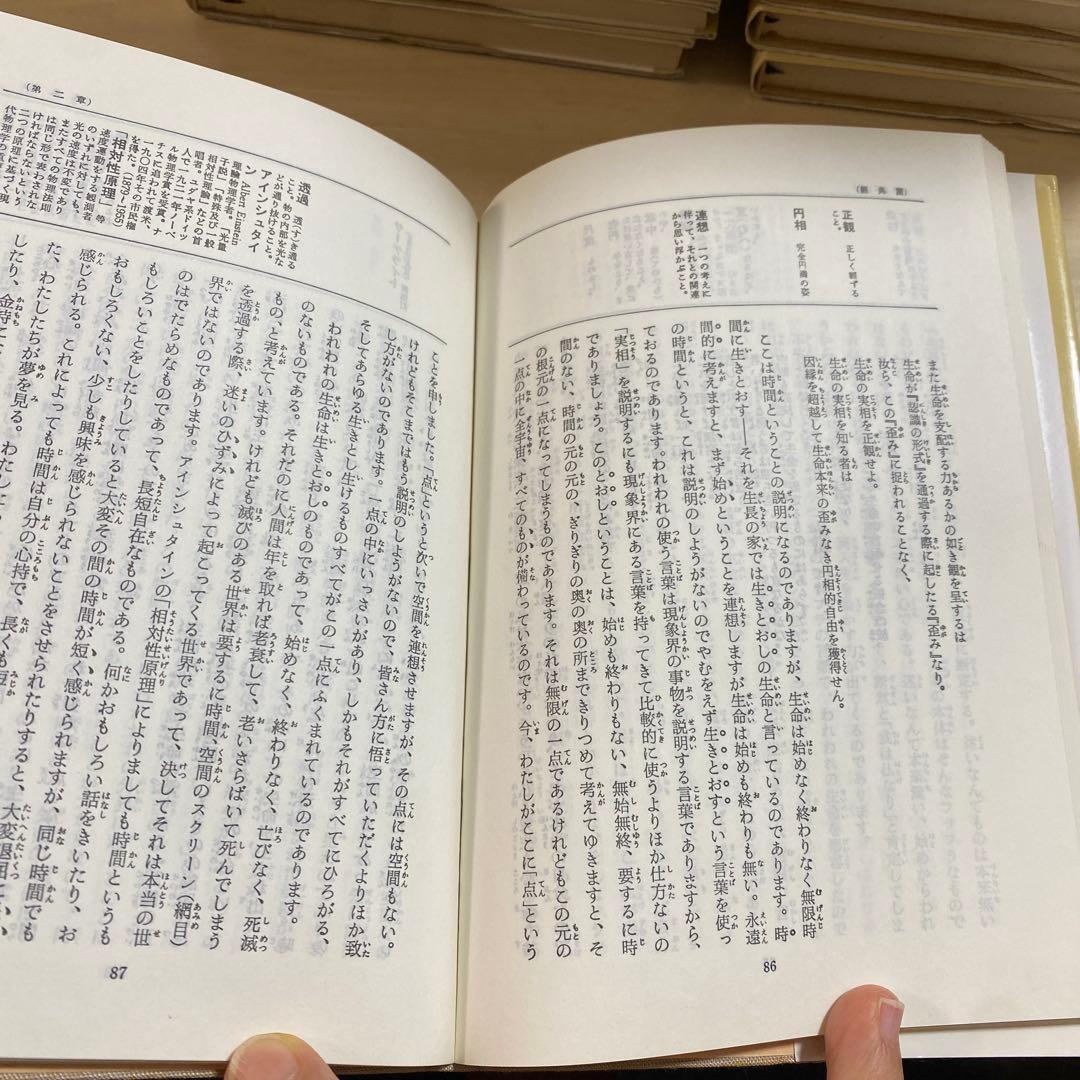 また生命を支配する力あるかの如き観を呈するは
生命が『認識の形式』を通過する際に起したる『歪み』なり。
汝ら、この『歪み』に捉われることなく、
生命の実相を正観せよ。
生命の実相を知る者は
因縁を超越して生命本来の歪みなき円相的自由を獲得せん。
ここは時間ということの説明になるのでありますが、生命は始めなく終わりなく無限時
間に生きとおす――それを生長の家では生きとおしの生命と言っているのであります。時
間的に考えますと、まず始めということを連想しますが生命は始めも終わりも無い。永遠
の時間というと、これは説明のしようがないのでやむをえず生きとおすという言葉を使っ
ておるのであります。われわれの使う言葉は現象界の事物を説明する言葉でありますから、
「実相」を説明するにも現象界にある言葉を持ってきて比較的に使うよりほか仕方ないの
でありましょう。このとおしということは、始めも終わりもない、無始無終、要するに時
間のない、時間の元の元の、ぎりぎりの奥の奥の所まできりつめて考えてゆきますと、そ
の根元の一点になってしまうものであります。それは無限の一点であるけれどもこの元の
一点の中に全宇宙、すべてのものが備わっているのです。今、わたしがここに「点」という
正観 正しく観ずる
こと。
円相 完全円満の姿
連想 一つの考えに
伴って、それとの関連
から思い浮かぶこと。
86
ことを申しました。「点」というと次いで空間を連想させますが、その点には空間もない。
けれどもそこまではもう説明のしようがないので、皆さん方に悟っていただくよりほか致
し方がないのであります。一点の中にいっさいがあり、しかもそれがすべてにひろがる、
そしてあらゆる生きとし生けるものすべてがこの一点にふくまれているのであります。
われわれの生命は生きとおしのものであって、始めなく、終わりなく、亡びなく、死滅
のないものである。それだのに人間は年を取れば老衰して、老いさらばいて死んでしまう
もの、と考えています。けれども滅びのある世界は要するに時間、空間のスクリーン(網目)
を透過する際、迷いのひずみによって起こってくる世界であって、決してそれは本当の世
界ではないのであります。アインシュタインの「相対性原理」によりましても時間というも
のはでたらめなものであって、長短自在なものである。何かおもしろい話をきいたり、お
もしろいことをしたりしていると大変その間の時間が短く感じられますが、同じ時間でも
おもしろくない、少しも興味を感じられないことをさせられたりすると、大変退屈で、
感じられる。これによっても時間は自分の心持で、長くも短
た、わたしたちが夢を見る。わたし
したり、金持
透過 透(す)き通る
こと。物の内部を光な
どが通り抜けること。
アインシュタイ
ン Albert Einstein
理論物理学者。「光量
子説」「特殊及び一般
相対性理論」などの首
唱者。ユダヤ系ドイツ
人で一九二一年ノーベ
ル物理学賞を受賞。ナ
チスに追われて渡米、
一九〇四年その市民権
を得た。(1879〜1955)
「相対性原理」 等
速度運動をする観測者
のいずれに対しても、
光の速度は不変であり
またすべての物理法則
は同じ形で表わされな
ければならないという
二つの原理に基づく現
(第二章)
87